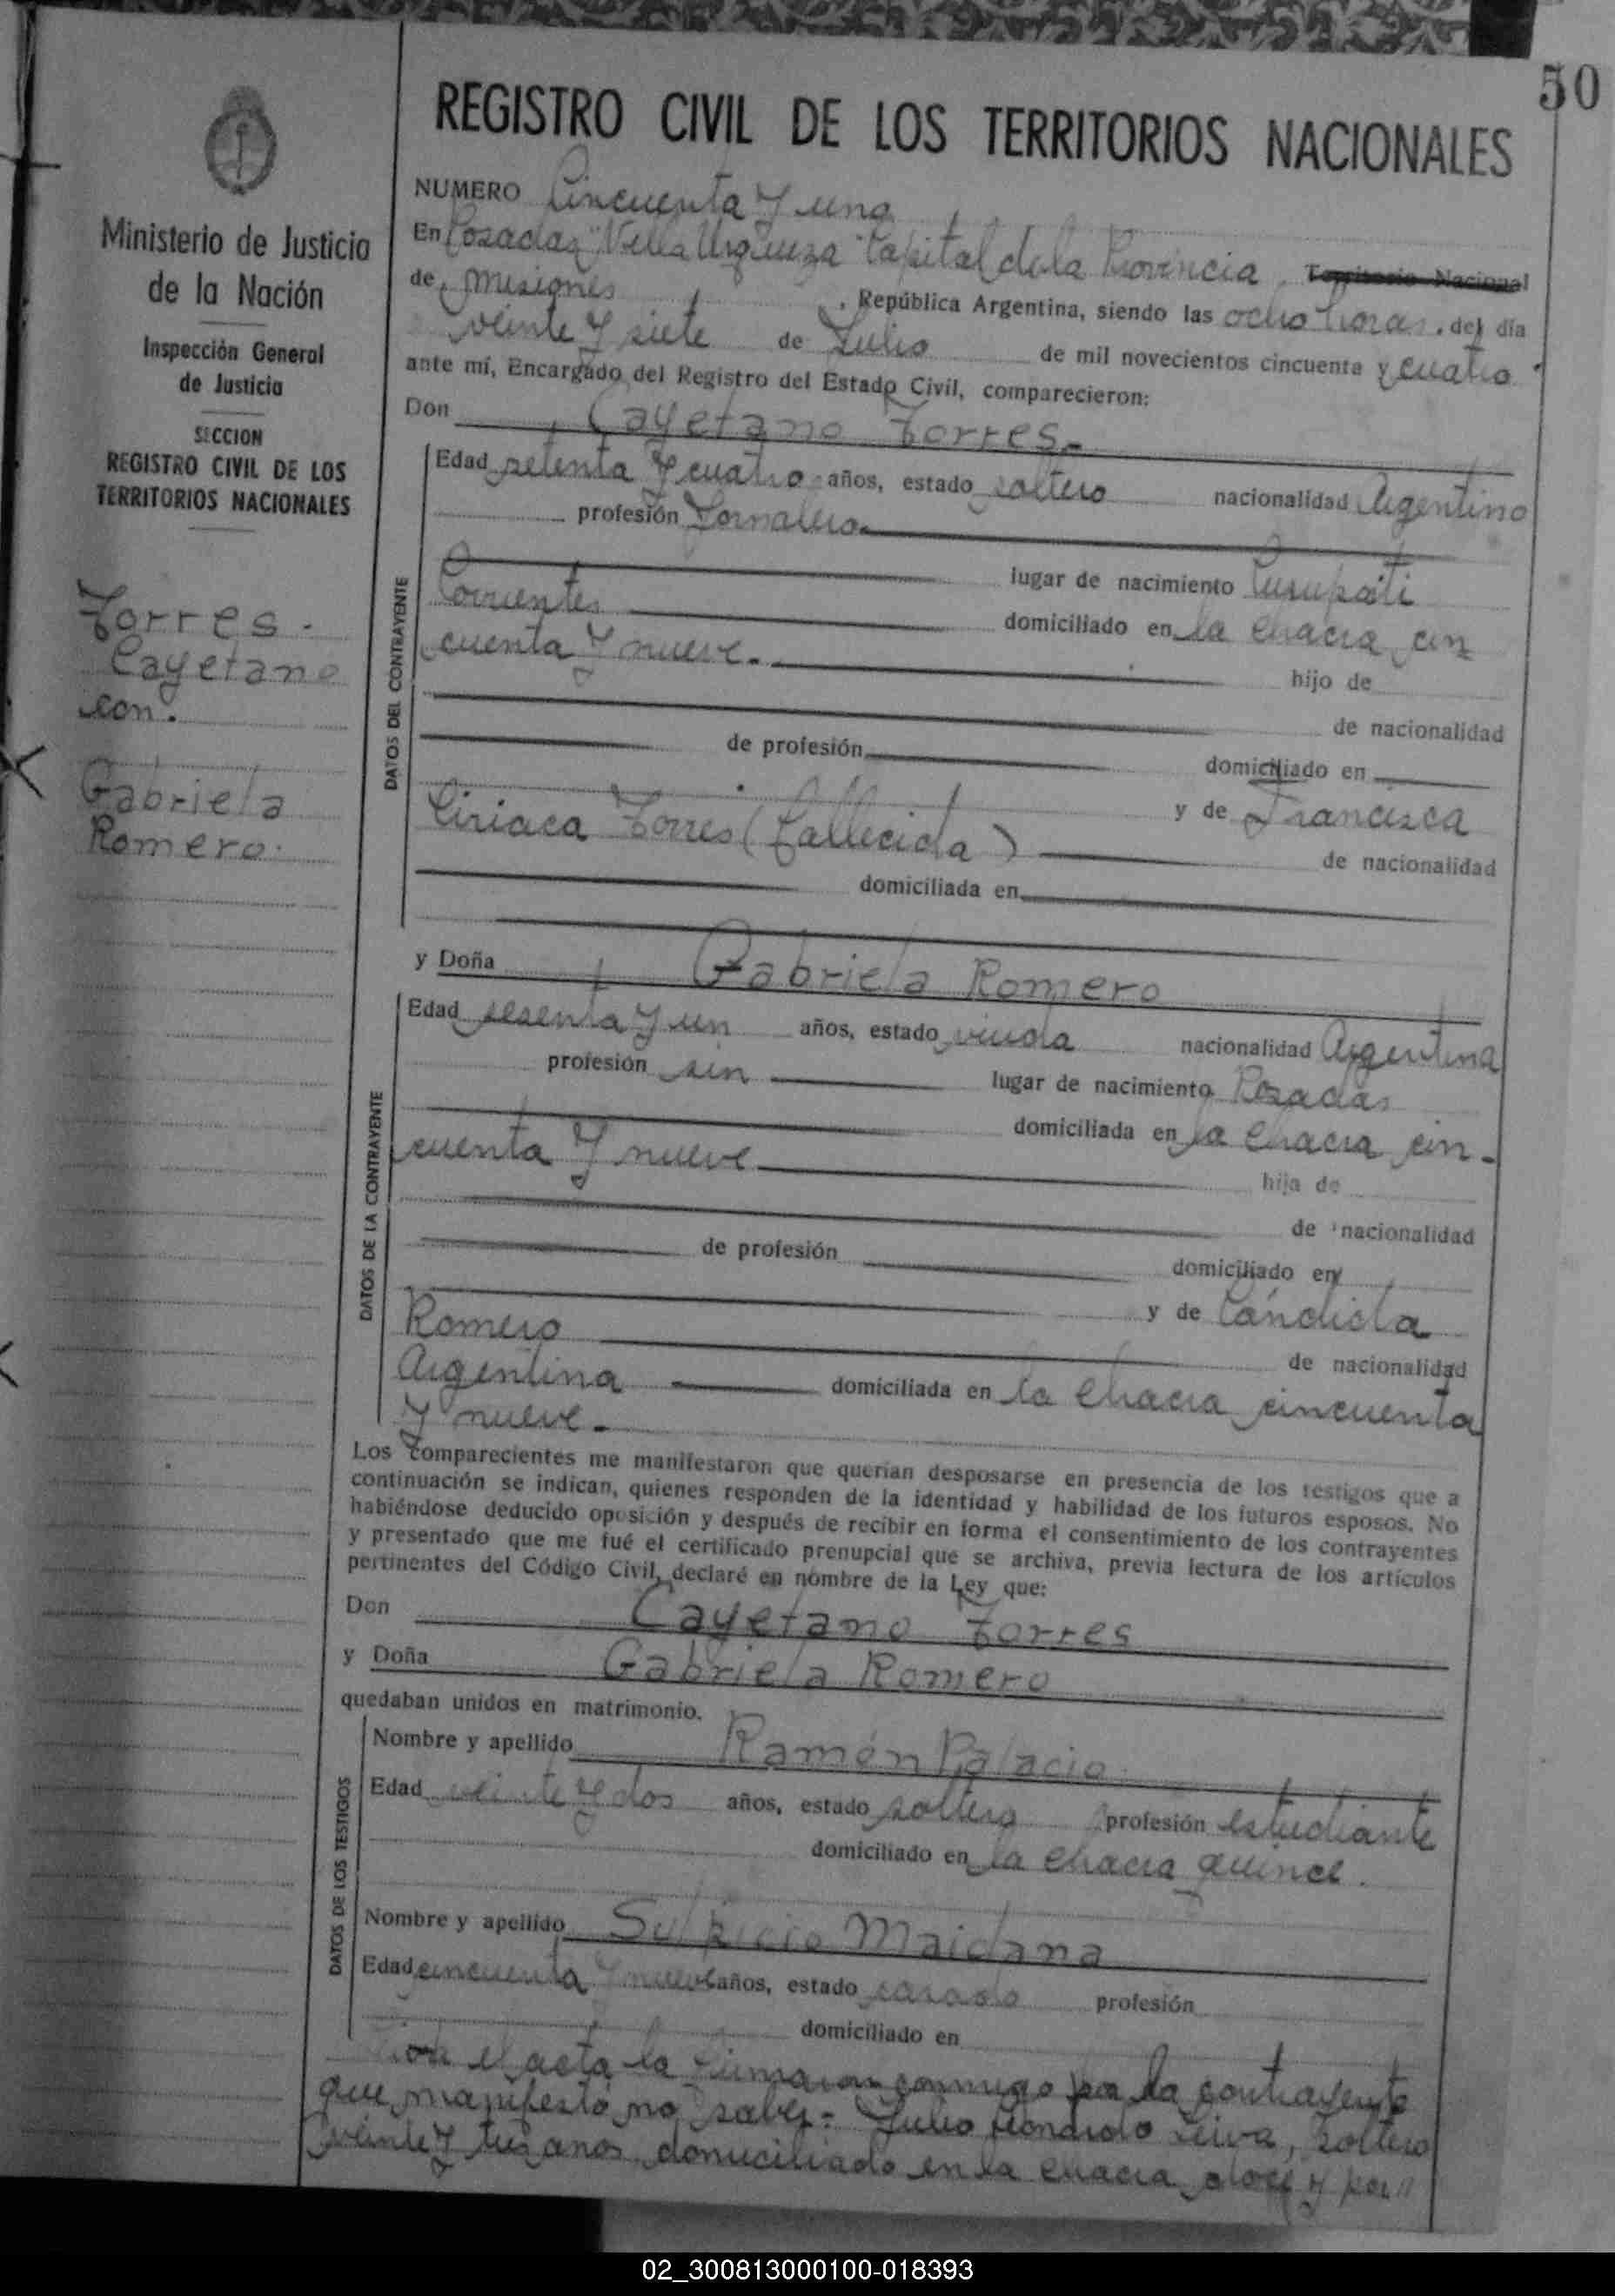 50
REGISTRO CIVIL DE LOS TERRITORIOS NACIONALES
Ministerio de Justicia
de la Nación
Inspección General
de Justicia
SECCION
REGISTRO CIVIL DE LOS
TERRITORIOS NACIONALES
Torres.
Cayetano
con.
Gabriela
Romero.
NUMERO Cincuenta y una
En Posadas "Villa Urquiza" Capital de la Provincia Territorio Nacional
de Misiones, República Argentina, siendo las ocho horas. del día
veinte y siete de Julio de mil novecientos cincuenta y cuatro
ante mí, Encargado del Registro del Estado Civil, comparecieron:
Don Cayetano Torres.-
DATOS DEL CONTRAYENTE
Edad setenta y cuatro años, estado soltero nacionalidad Argentino
profesión Jornalero
lugar de nacimiento Curupaiti
Corrientes domiciliado en la chacra cin
cuenta y nueve.- hijo de
de nacionalidad
de profesión domiciliado en
y de Francisca
Ciriaca Torres (fallecida) de nacionalidad
domiciliada en
y Doña Gabriela Romero
DATOS DE LA CONTRAYENTE
Edad sesenta y un años, estado viuda nacionalidad Argentina
profesión sin lugar de nacimiento Posadas
domiciliada en la chacra cin-
cuenta y nueve hija de
de nacionalidad
de profesión domiciliado en
y de Cándida
Romero de nacionalidad
Argentina domiciliada en la chacra cincuenta
y nueve.-
Los comparecientes me manifestaron que querían desposarse en presencia de los testigos que a
continuación se indican, quienes responden de la identidad y habilidad de los futuros esposos. No
habiéndose deducido oposición y después de recibir en forma el consentimiento de los contrayentes
y presentado que me fué el certificado prenupcial que se archiva, previa lectura de los artículos
pertinentes del Código Civil, declaré en nombre de la Ley que:
Don Cayetano Torres
y Doña Gabriela Romero
quedaban unidos en matrimonio.
DATOS DE LOS TESTIGOS
Nombre y apellido Ramón Palacio
Edad veinte y dos años, estado soltero profesión estudiante
domiciliado en la chacra quince.
Nombre y apellido Sulpicio Maidana
Edad cincuenta y nueve años, estado casado profesión
domiciliado en
el acta la firmaron conmigo por la contrayente
que manifestó no saber.- Julio Leiva, soltero
veinte y tres años domiciliado en la chacra doce y por
02_300813000100-018393